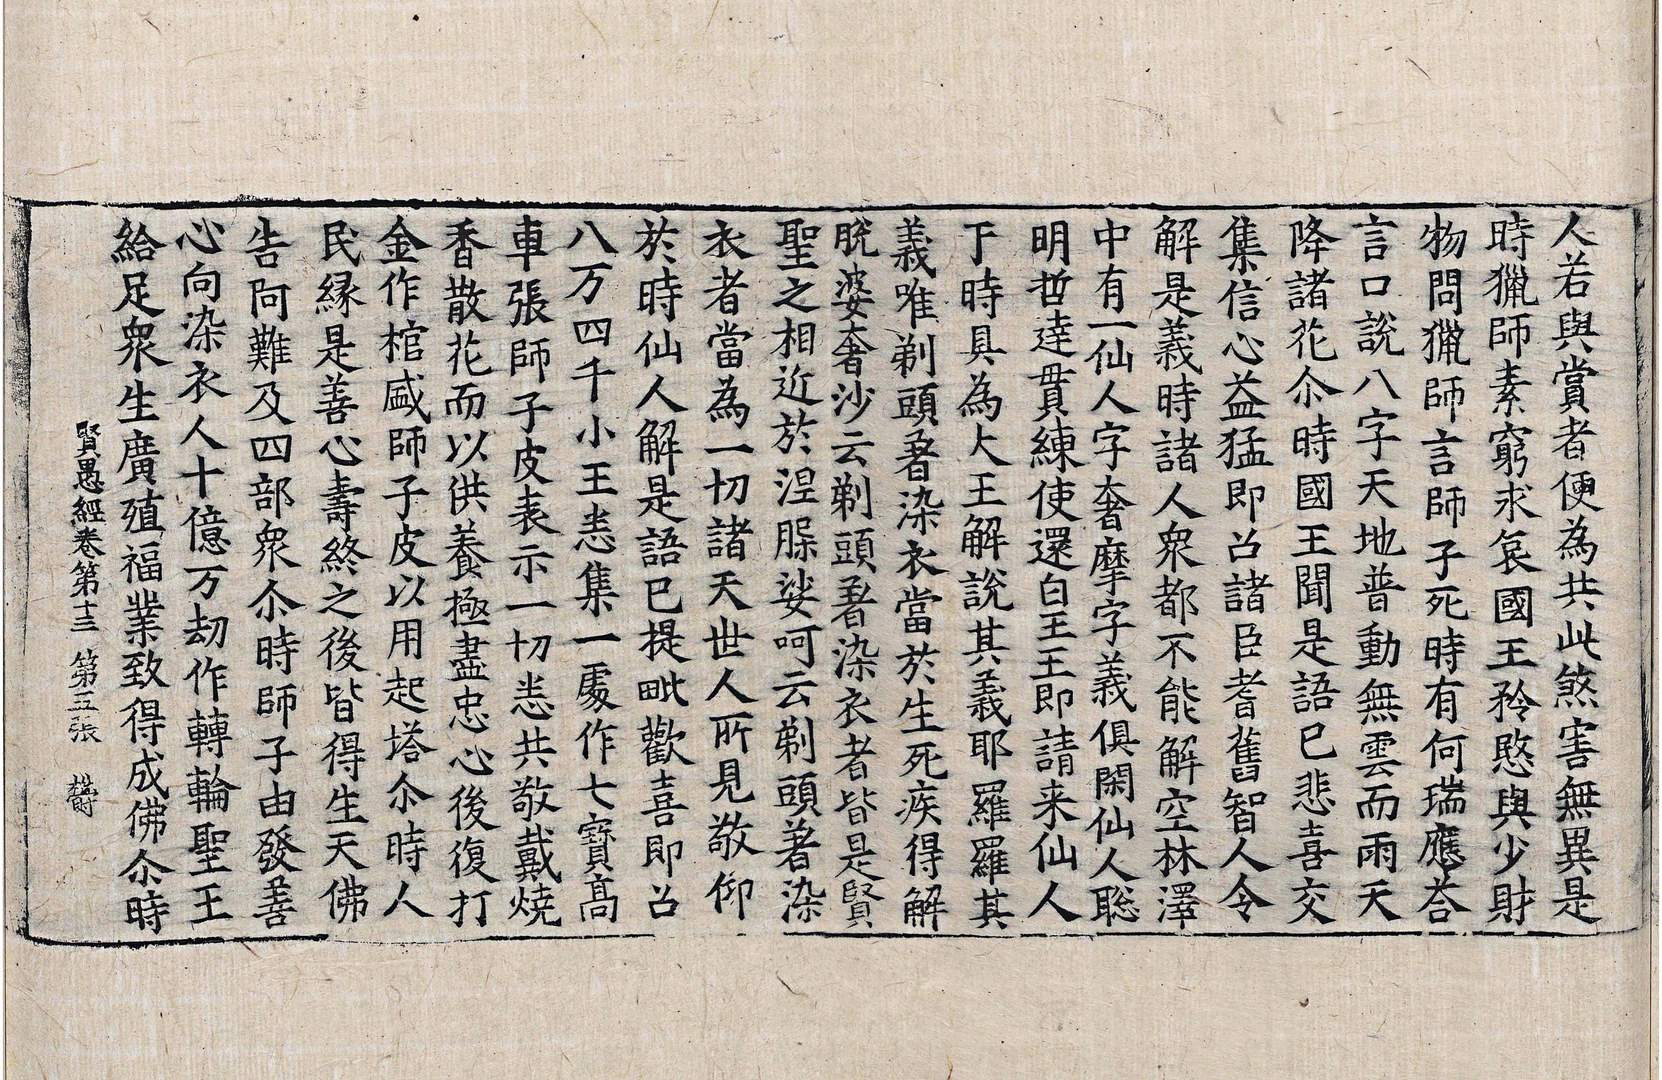 人若與賞者便為共此煞害無異是
時獵師素窮求哀國王矜愍與少財
物問獵師言師子死時有何瑞應荅
言口說八字天地普動無雲而雨天
降諸花尒時國王聞是語已悲喜交
集信心益猛即召諸臣耆舊智人令
解是義時諸人衆都不能解空林澤
中有一仙人字奢摩字義俱閑仙人聡
明哲達貫練使還白王王即請来仙人
于時具為大王解說其義耶羅羅其
義唯剃頭著染衣當於生死疾得解
脫婆奢沙云剃頭著染衣者皆是賢
聖之相近於涅槃娑呵云剃頭著染
衣者當為一切諸天世人所見敬仰
於時仙人解是語已提毗歡喜即召
八万四千小王悉集一處作七寶高
車張師子皮表示一切悉共敬戴燒
香散花而以供養極盡忠心後復打
金作棺盛師子皮以用起塔尒時人
民緣是善心壽終之後皆得生天佛
告阿難及四部衆尒時師子由發善
心向染衣人十億万劫作轉輪聖王
給足衆生廣殖福業致得成佛尒時
賢愚經卷第十三 第五張